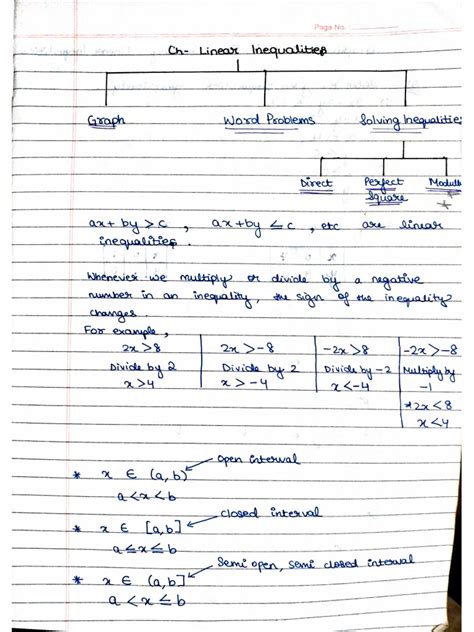 Page No.
Ch- Linear Inequalities
Graph Word Problems Solving Inequalities
Direct Perfect Square Modulus
ax+ by > c , ax+by ≤ c , etc are linear
inequalities.
Whenever we multiply or divide by a negative
number in an inequality, the sign of the inequality
changes.
For example,
2x >8 2x >-8 -2x >8 -2x >-8
Divide by 2 Divide by 2 Divide by -2 Multiply by
x >4 x > -4 x <-4 -1
2x < 8
x <4
Open interval
* x ∈ (a, b)
a < x < b
Closed interval
* x ∈ [a, b]
a ≤ x ≤ b
Semi open, semi closed interval
* x ∈ (a, b]
a < x ≤ b